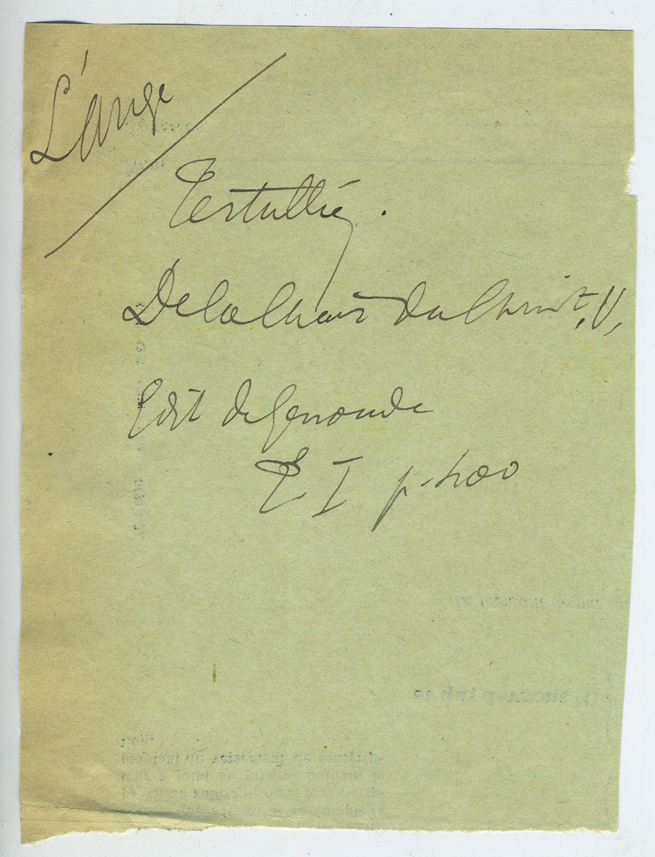 L'ange
Tertullien.
De la Chair du Christ, V,
Edit de Genoude
T I p. 400